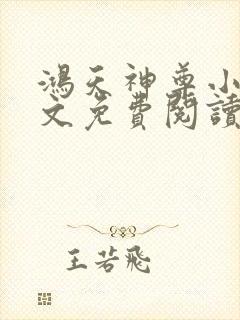 鴻天神尊小
文免費閱讀
王若飛